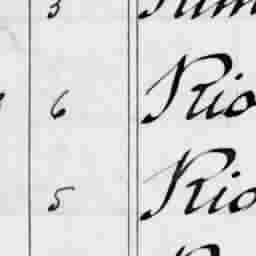 6 Rio
5 Rio